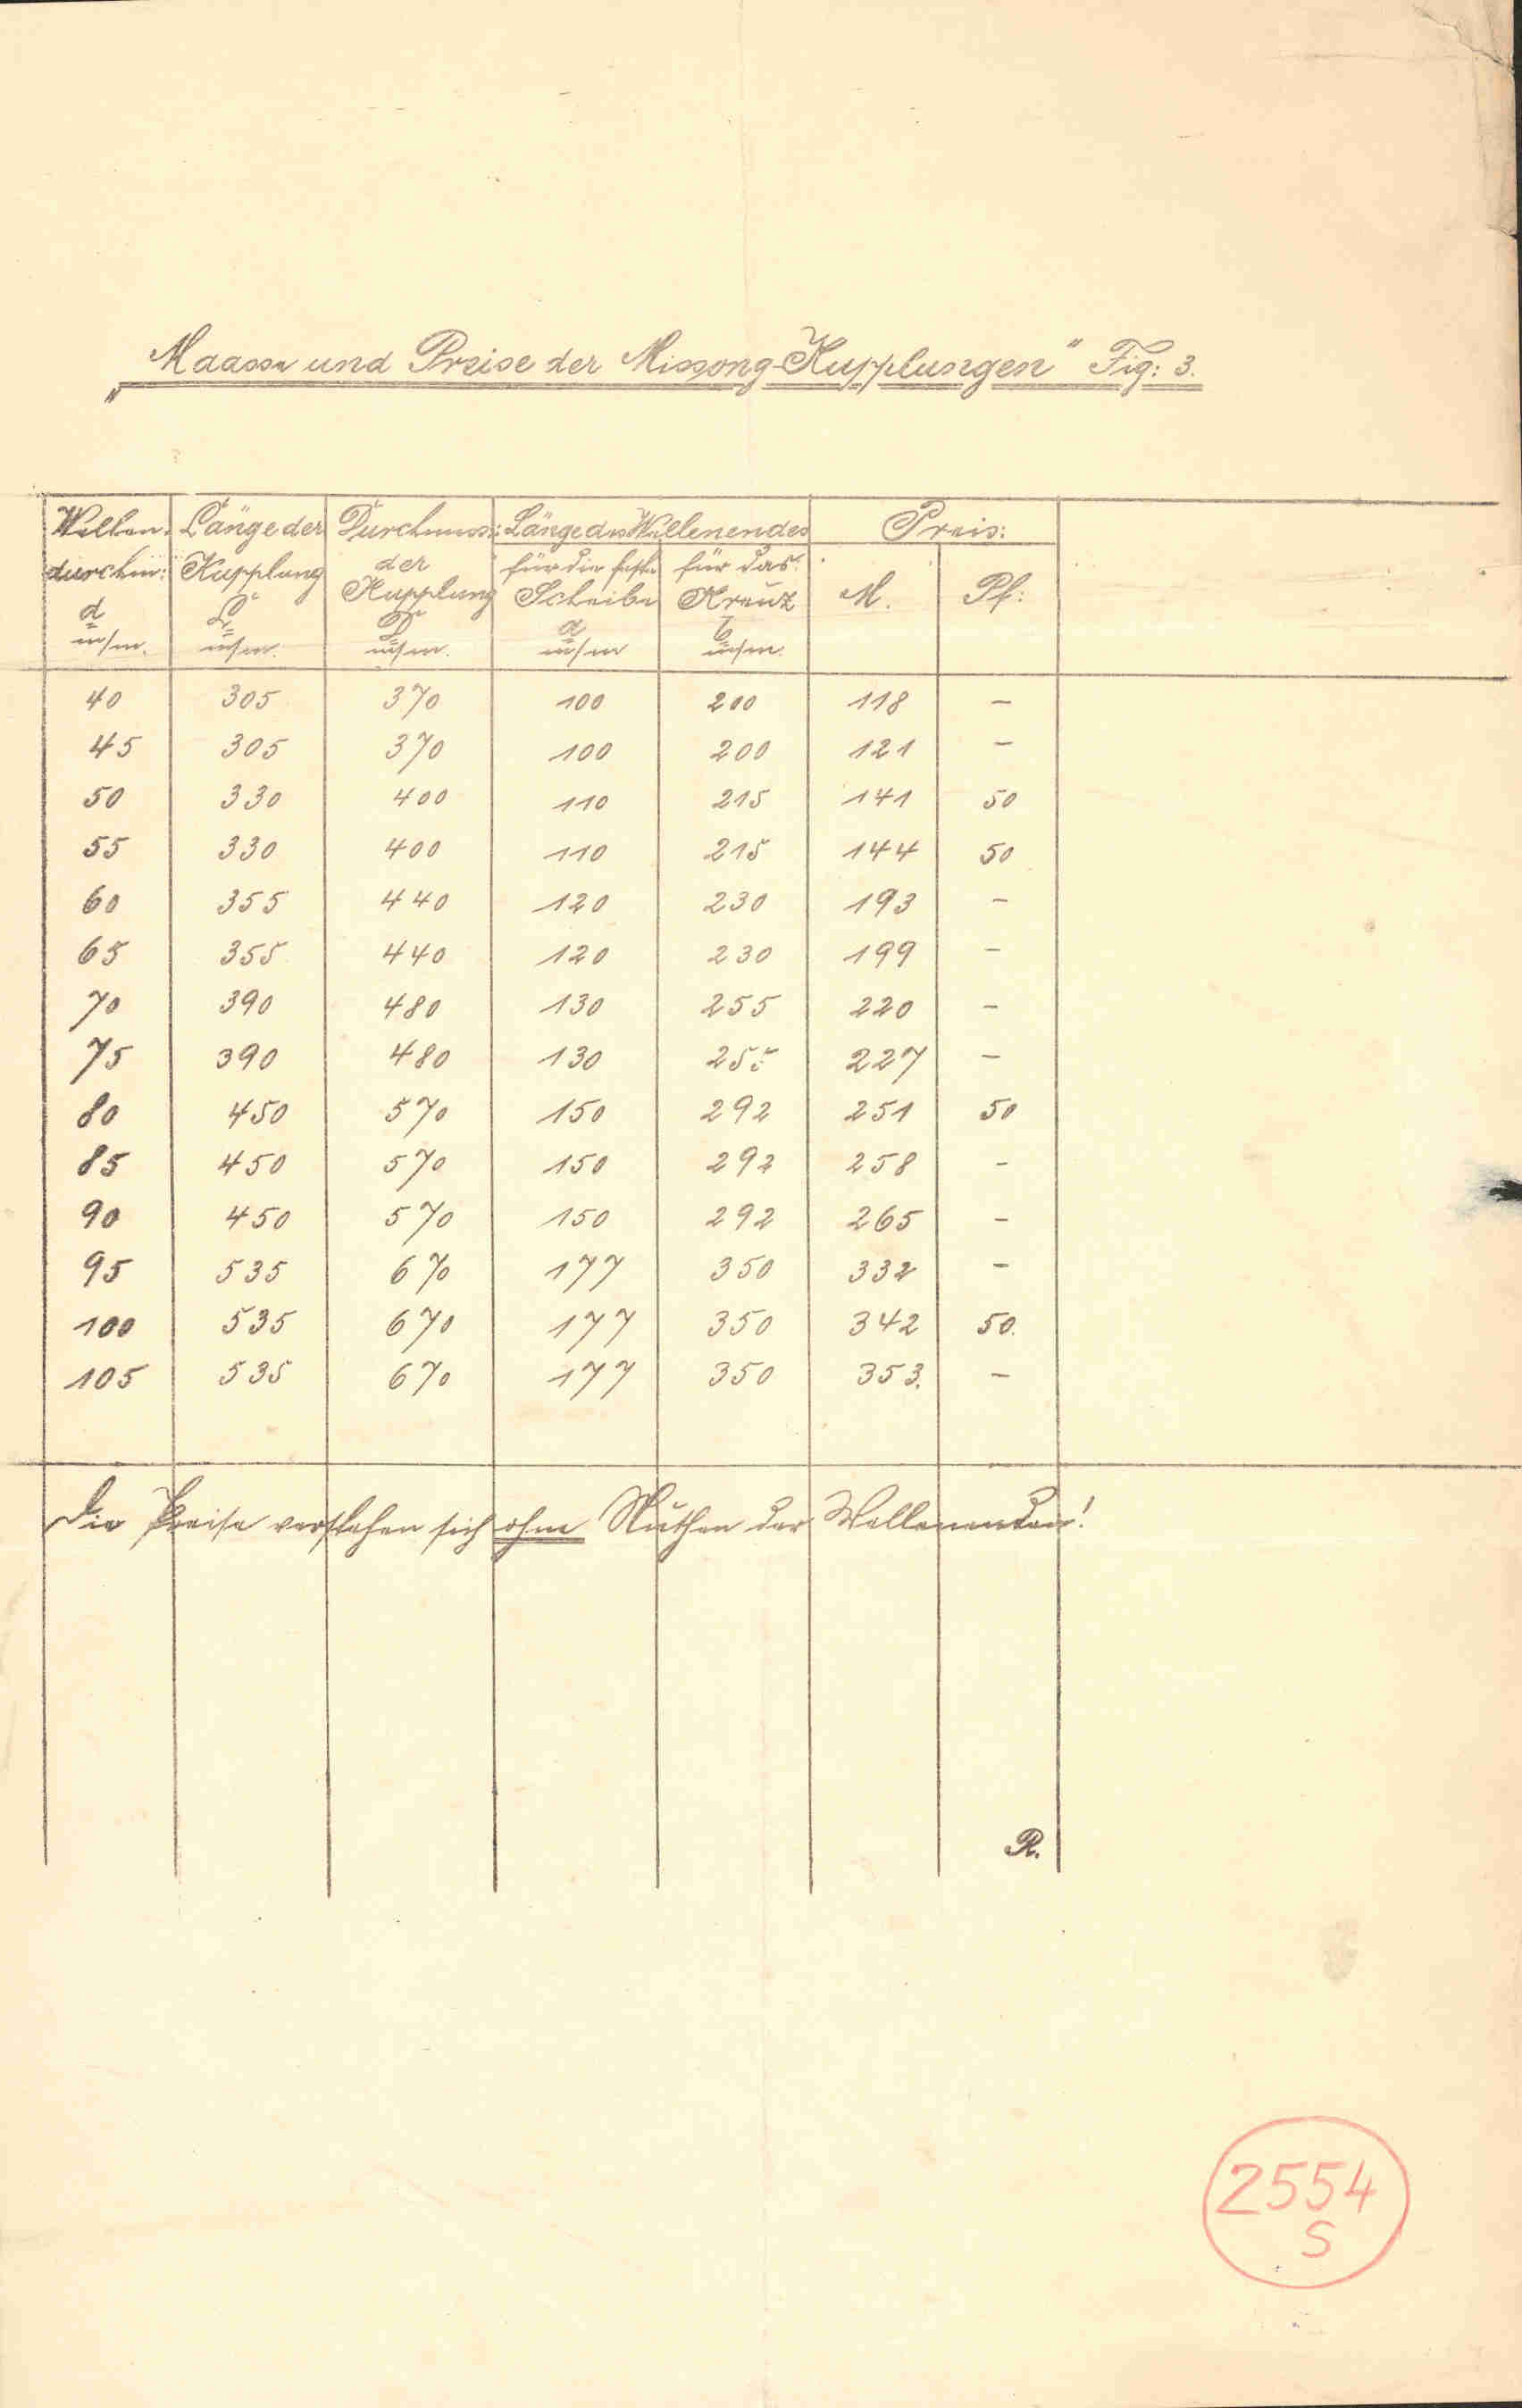 „Maasse und Preise der Missong-Kupplungen" Fig: 3.
Wellen- Länge der Durchmess: Länge des Wellenendes Preis:
durchm: Kupplung der für die feste für das
Kupplung Scheibe Kreuz M. Pf:
d L D a b
m/m. m/m. m/m. m/m m/m.
40 305 370 100 200 118 —
45 305 370 100 200 121 —
50 330 400 110 215 141 50
55 330 400 110 215 144 50
60 355 440 120 230 193 —
65 355 440 120 230 199 —
70 390 480 130 255 220 —
75 390 480 130 255 227 —
80 450 570 150 292 251 50
85 450 570 150 292 258 —
90 450 570 150 292 265 —
95 535 670 177 350 332 —
100 535 670 177 350 342 50.
105 535 670 177 350 353. —
Die Preise verstehen sich ohne Nuthen der Wellenenden!
R.
2554
S